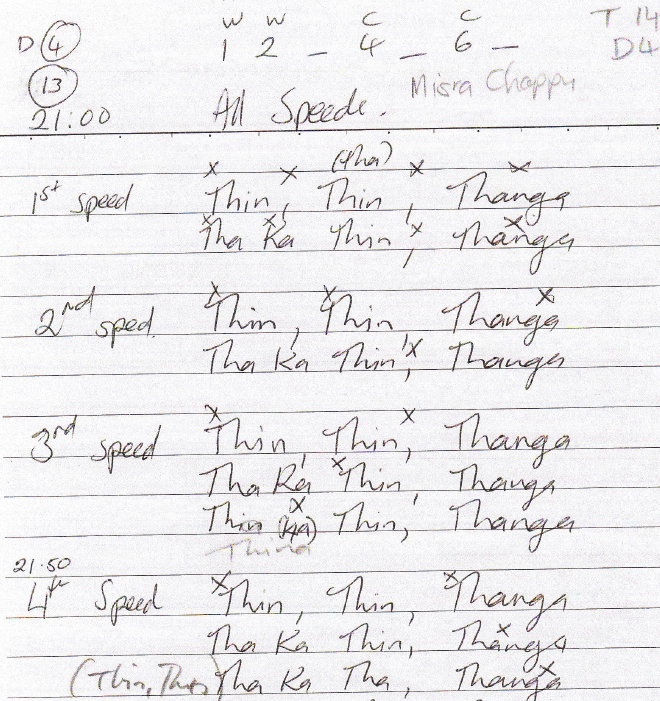 W W C C T 14
D 4 1 2 - 4 - 6 - D4
13 Misra Chappu
21:00 All Speeds.
(tha)
1st speed Thin, Thin, Thanga
Tha Ka Thin, Thanga
2nd speed. Thin, Thin, Thanga
Tha Ka Thin, Thanga
3rd speed Thin, Thin, Thanga
Tha Ka Thin, Thanga
Thin (ka) Thin, Thanga
21.50
4th Speed Thin, Thin, Thanga
Tha Ka Thin, Thanga
(Thin, Thin) Tha Ka Tha, Thanga